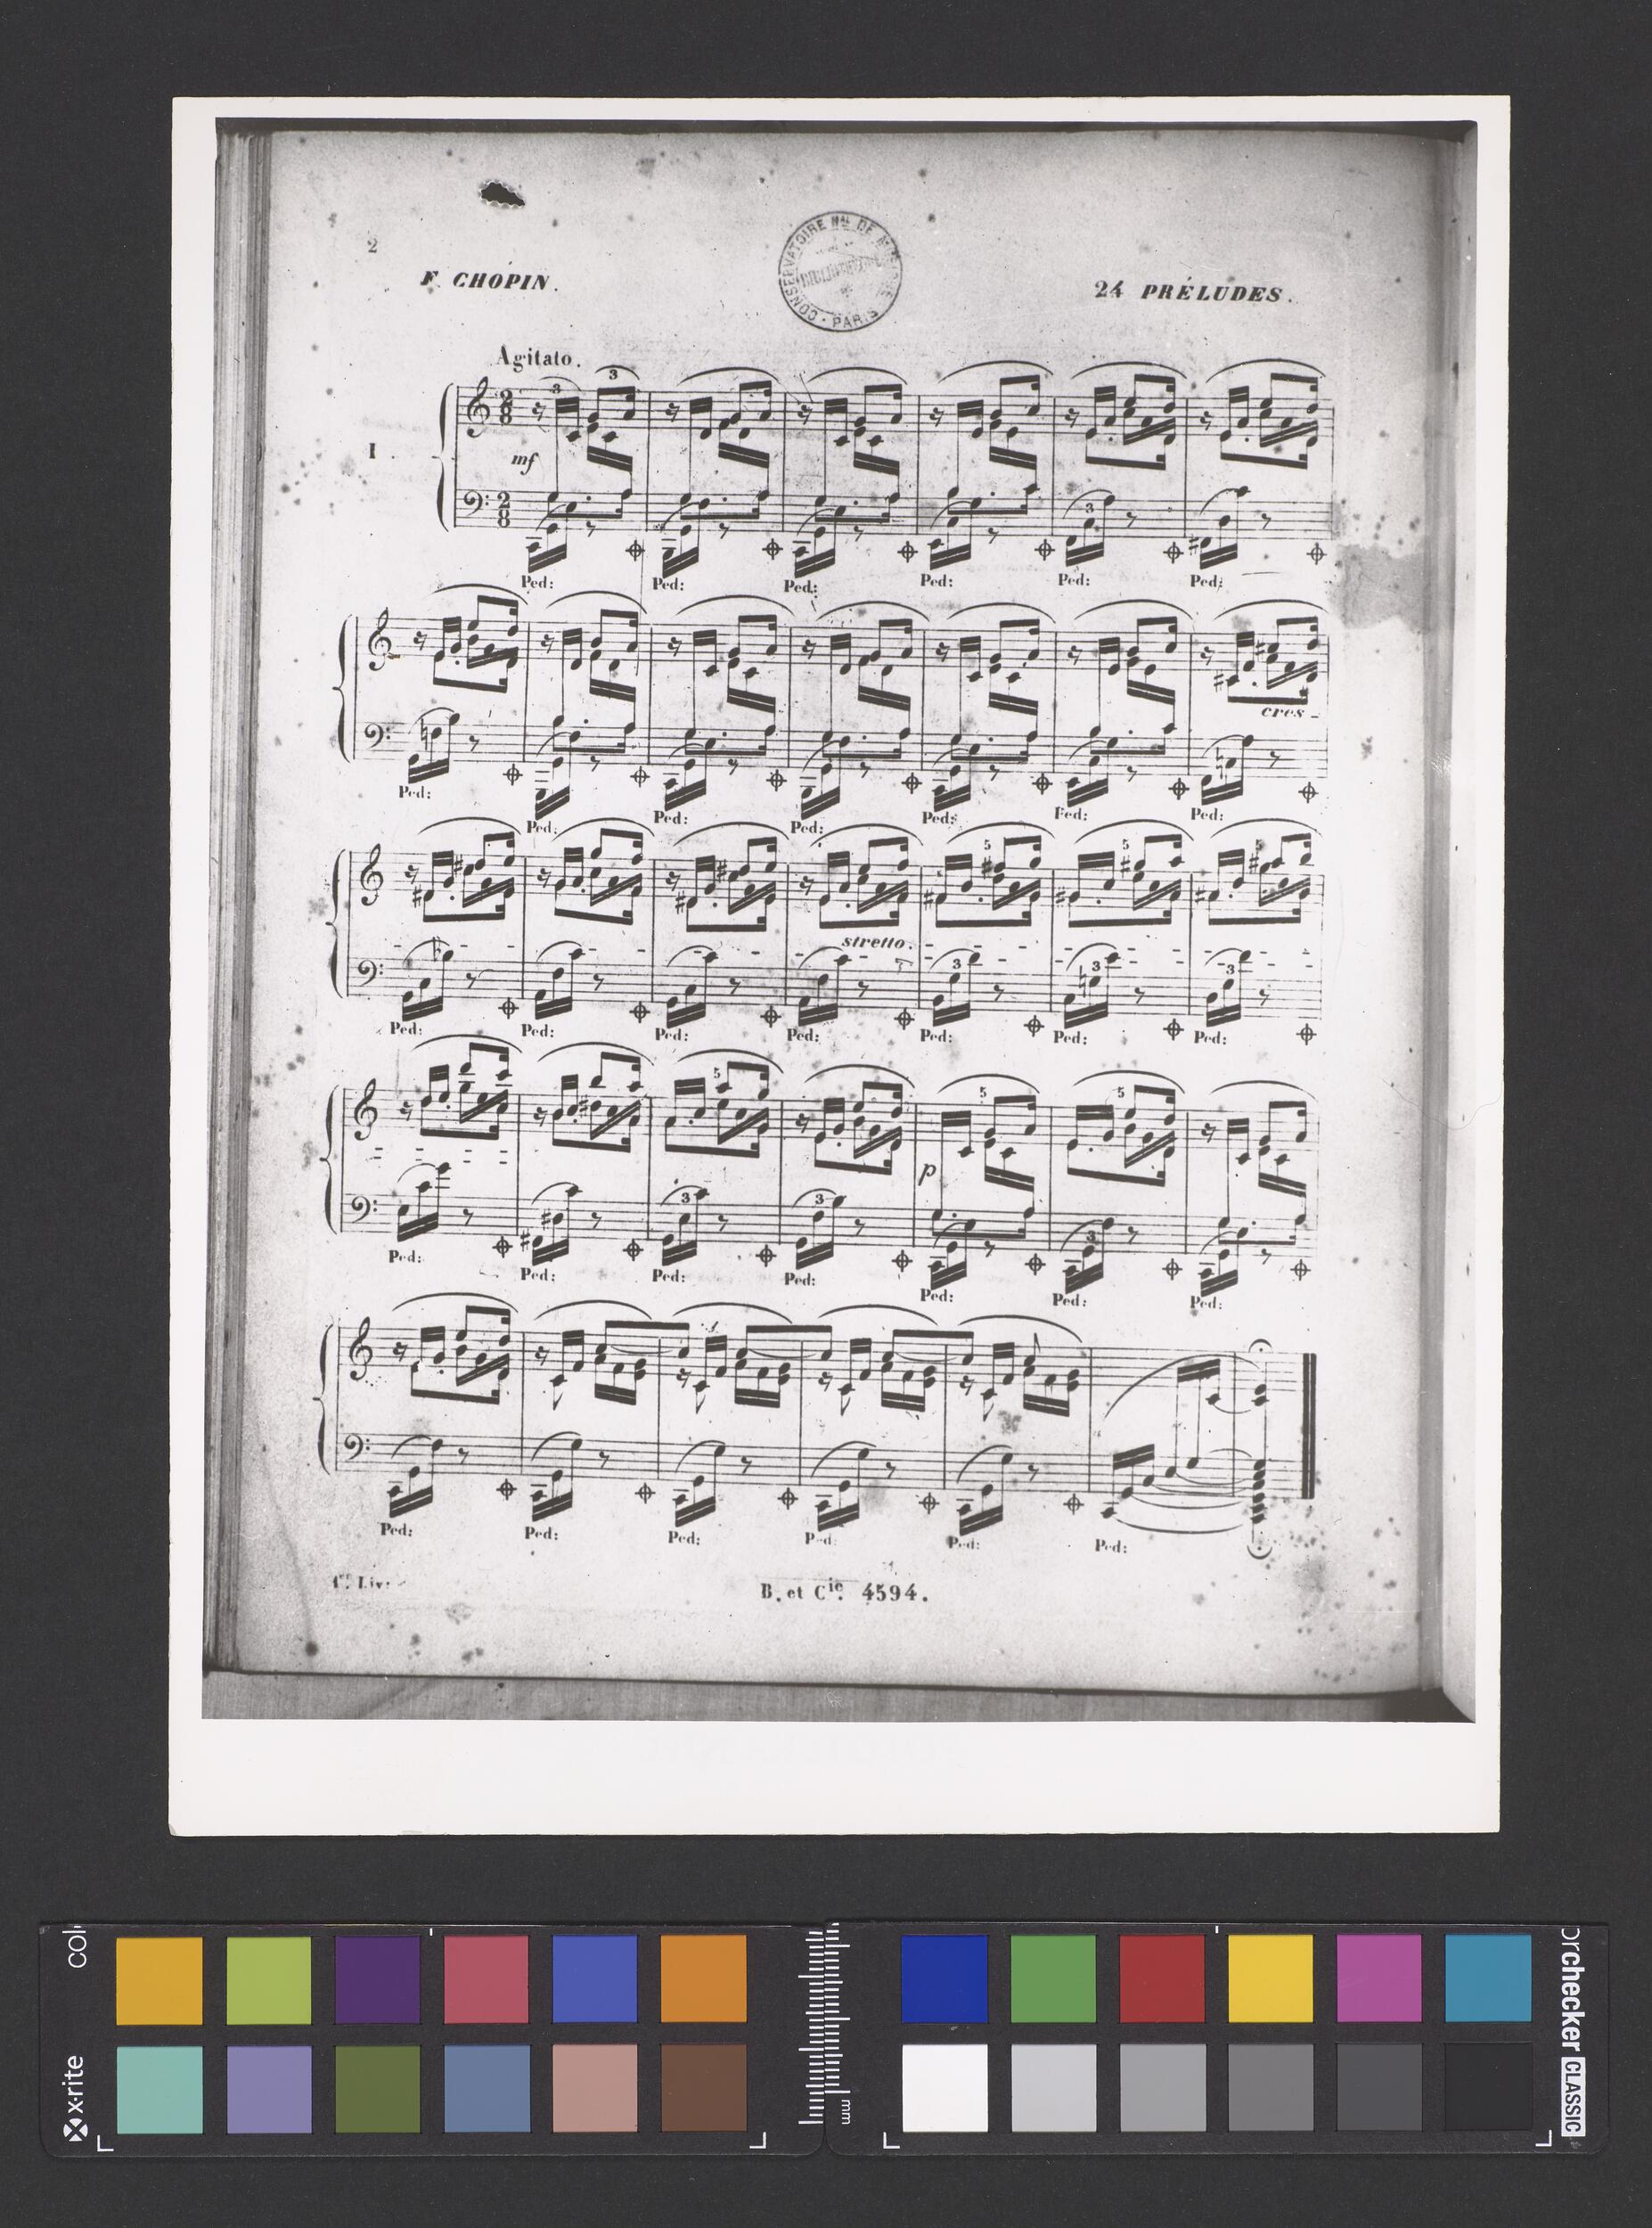 2
CONSERVATOIRE Nal DE MUSIQUE
BIBLIOTHÈQUE
PARIS
F. CHOPIN.
24 PRÉLUDES.
Agitato.
3 3
I.
2 8
mf
2 8
3
Ped: Ped: Ped: Ped: Ped: Ped:
cres -
Ped: Ped: Ped: Ped: Ped: Ped: Ped:
5 5 5
stretto.
3 3 3
Ped: Ped: Ped: Ped: Ped: Ped: Ped:
5 5 5
p
3 3 3
Ped: Ped: Ped: Ped: Ped: Ped: Ped:
Ped: Ped: Ped: Ped: Ped: Ped:
1re Liv:
B. et Cie. 4594.
x-rite
col
mm
orchecker CLASSIC